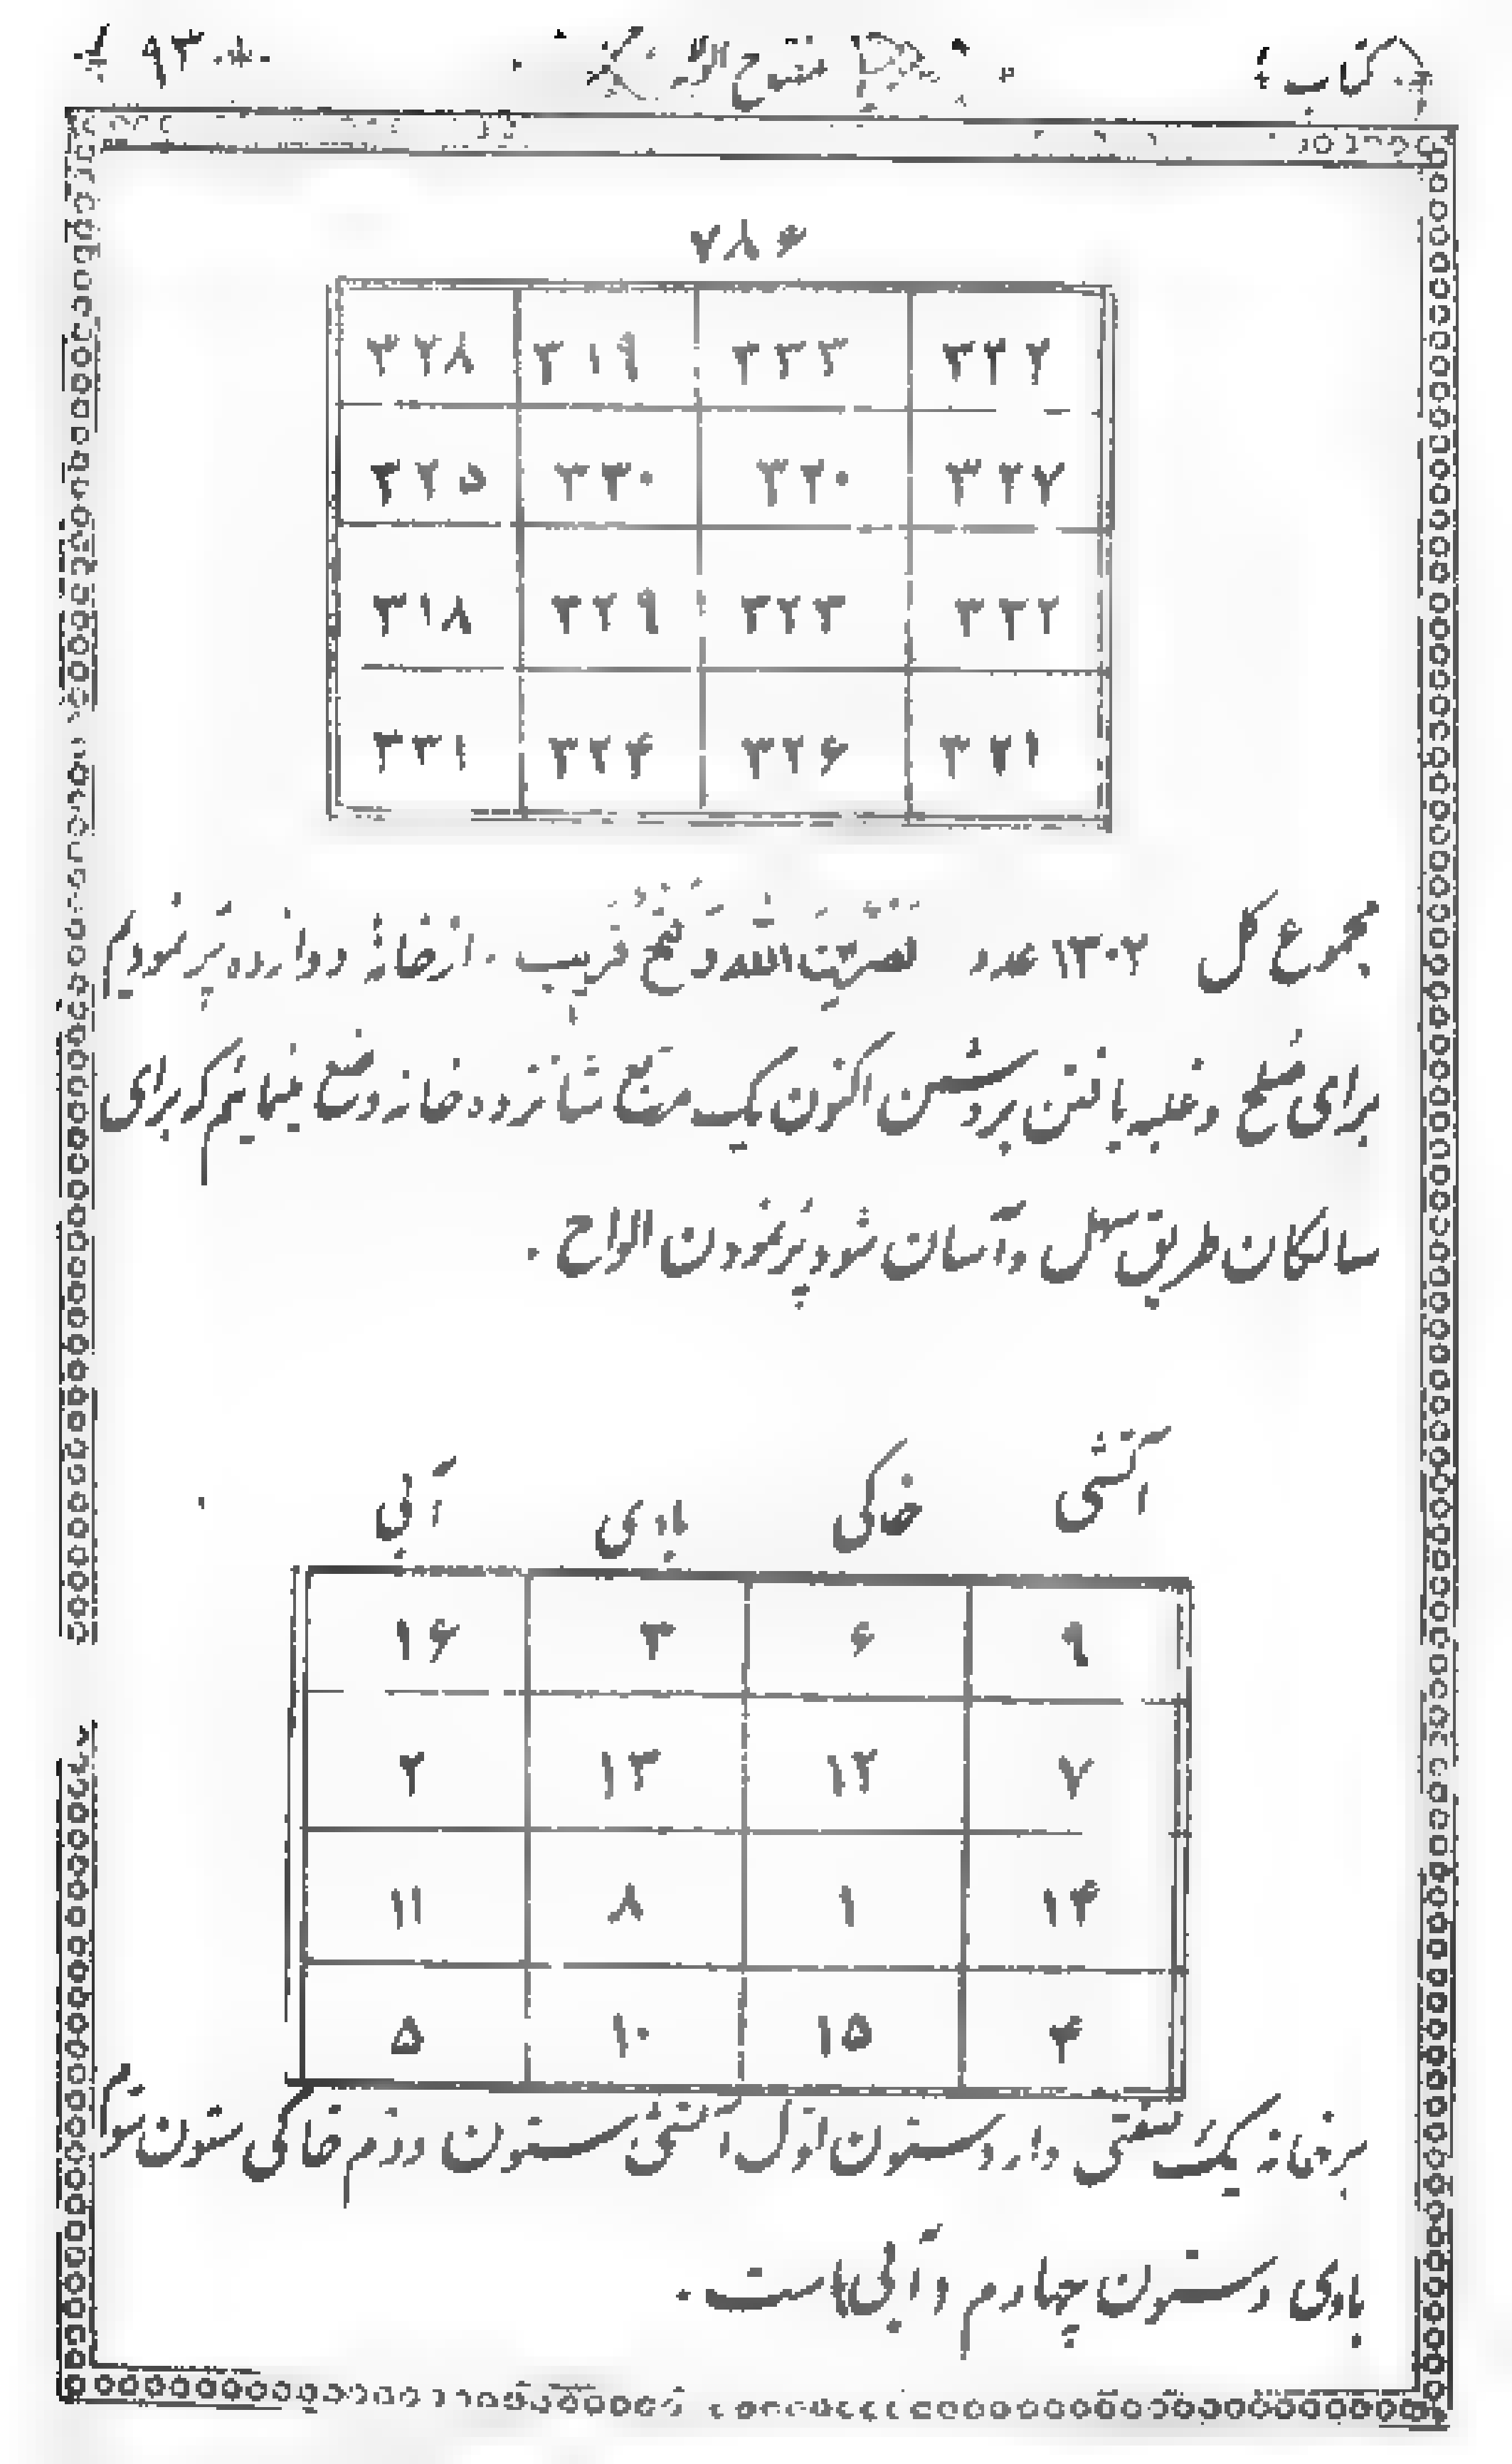 کتاب مفتاح ۹۳
۷۸۶
۳۲۲ ۳۳۳ ۳۱۹ ۳۲۸
۳۲۷ ۳۲۰ ۳۳۰ ۳۲۵
۳۳۲ ۳۲۳ ۳۲۹ ۳۱۸
۳۲۱ ۳۲۶ ۳۲۴ ۳۳۱
مجموع کل ۱۳۰۲ عدد نصر من الله و فتح قریب . از خانهٔ دوازده پر نمودیم
برای صلح و غلبه یافتن بردشمن اکنون یک مربع شانزده خانه وضع مینمایم که برای
سالکان طریق سهل و آسان شود پر نمودن الواح .
آتشی خاکی بادی آبی
۹ ۶ ۳ ۱۶
۷ ۱۲ ۱۳ ۲
۱۴ ۱ ۸ ۱۱
۴ ۱۵ ۱۰ ۵
هر خانه یک صفتی دارد ستون اول آتشی ستون دوم خاکی ستون سوم
بادی و ستون چهارم و آبی هاست .